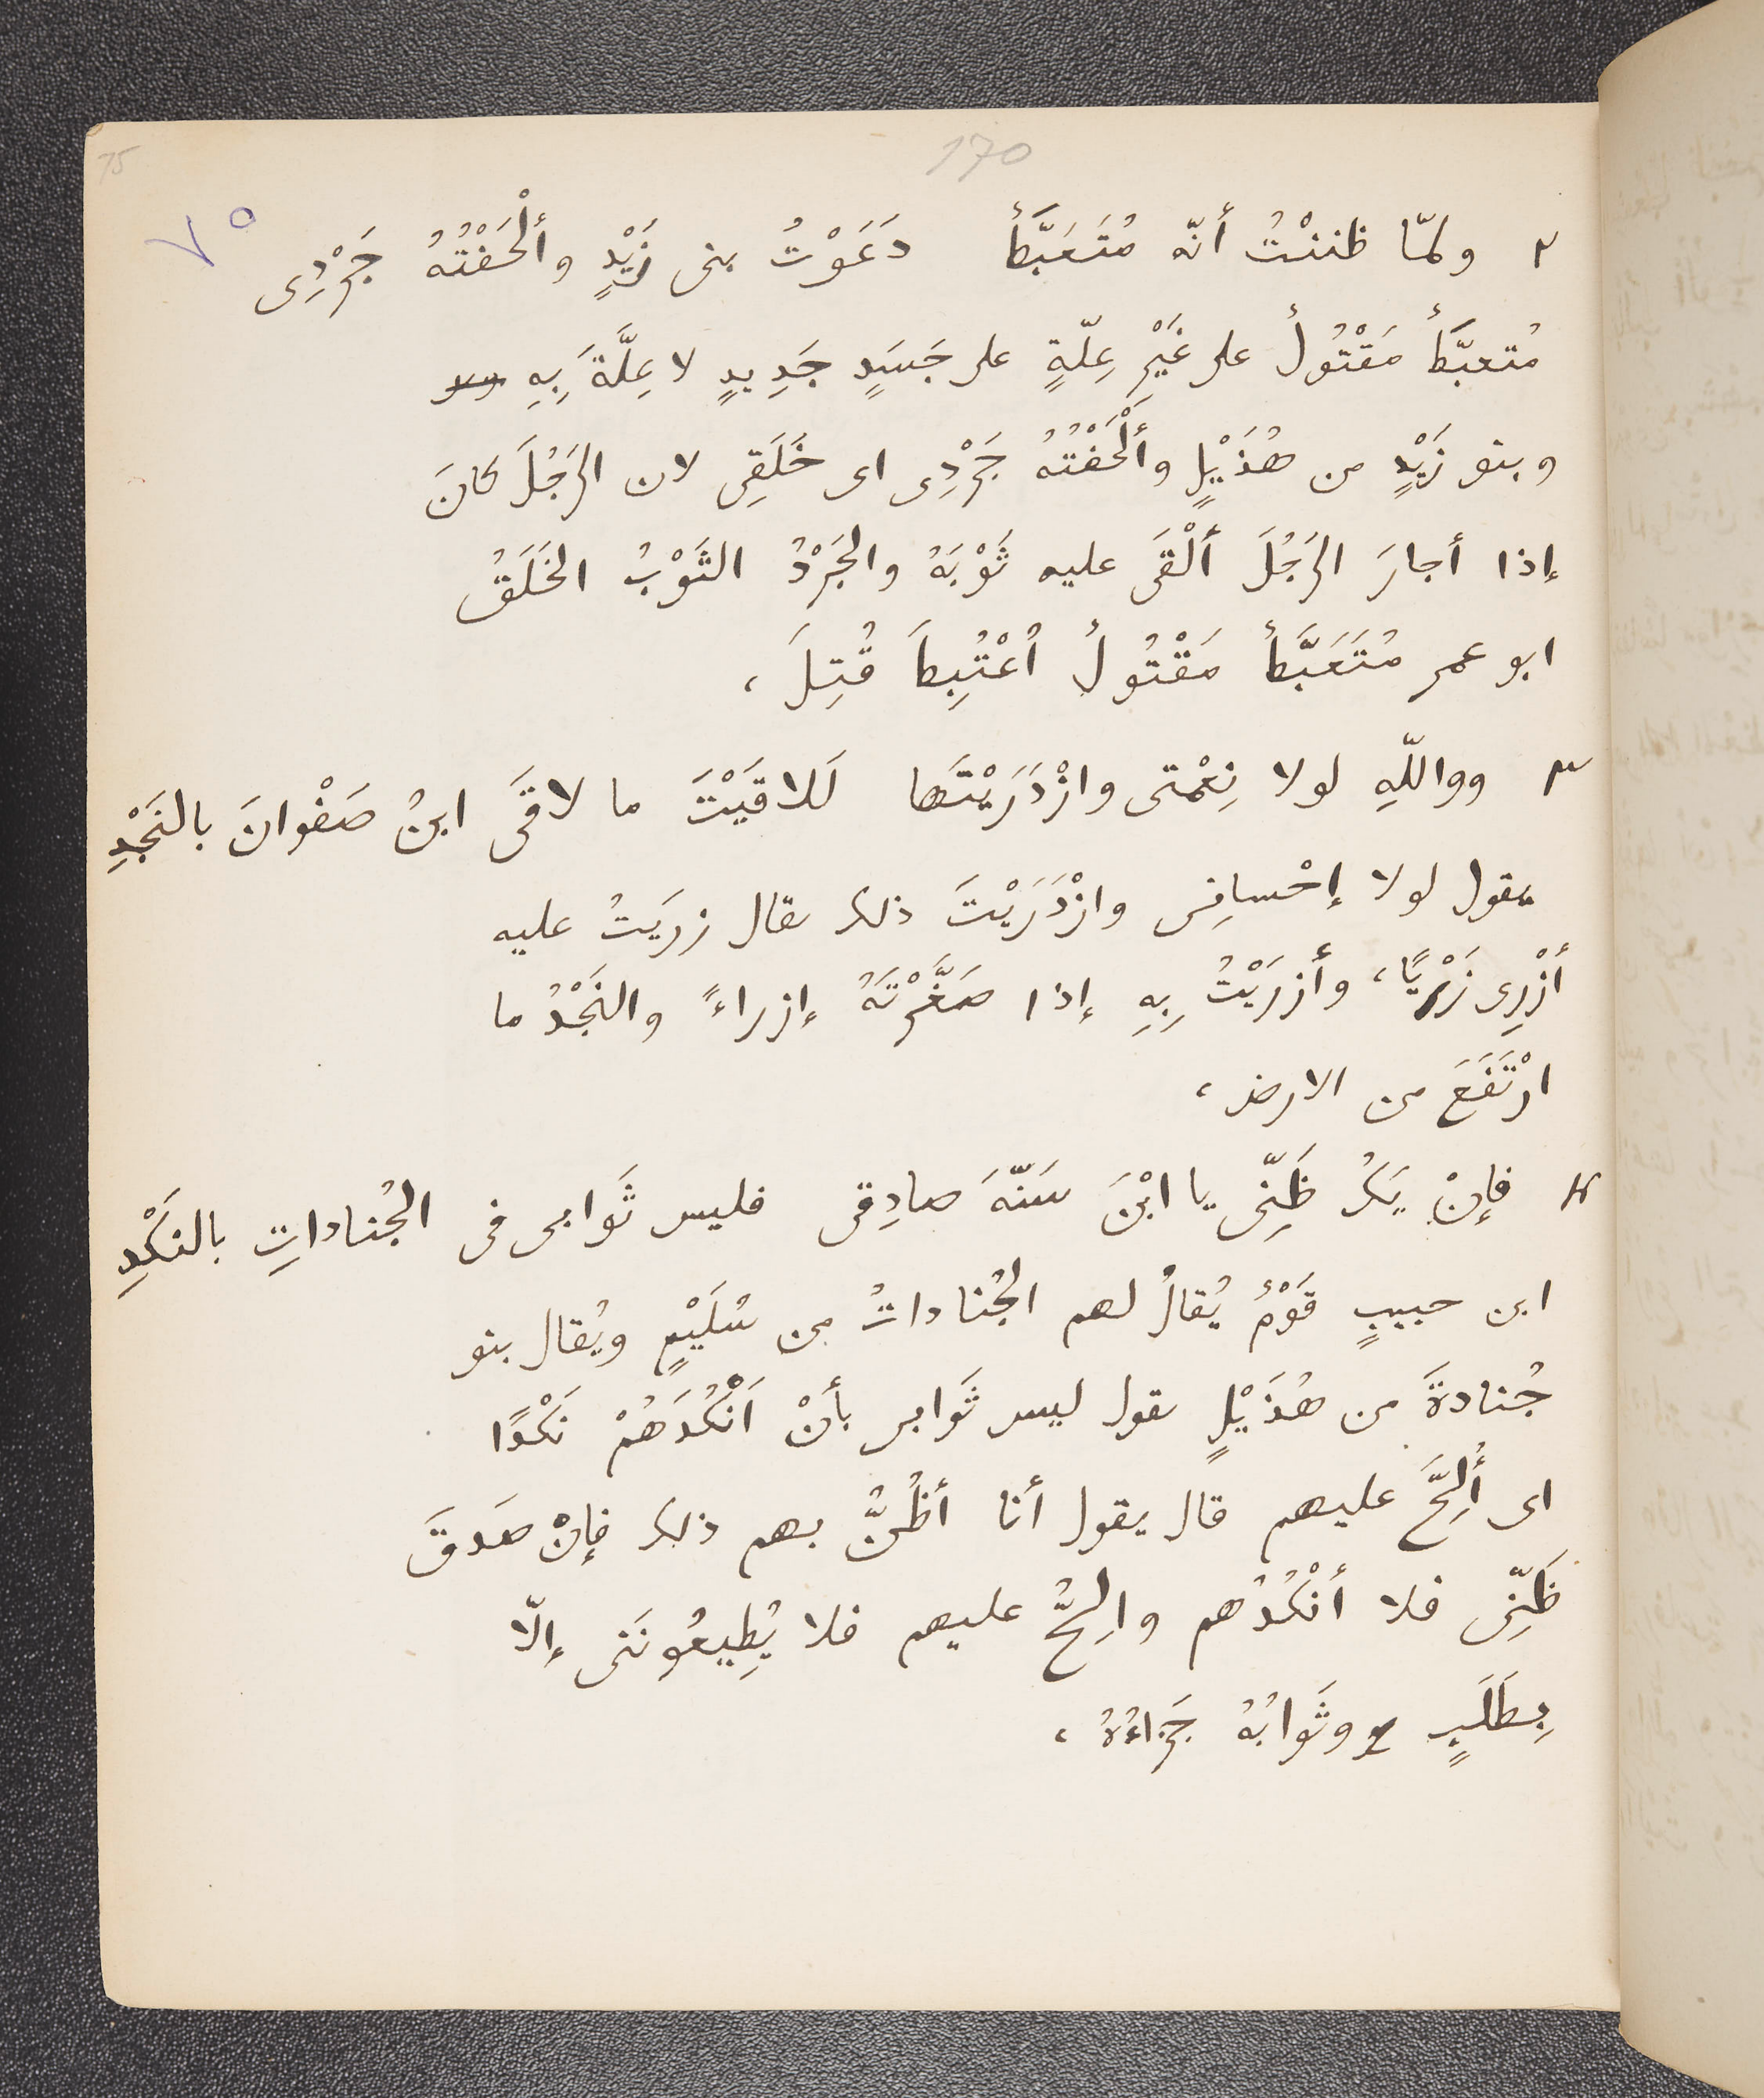 75
170
٧٥
٢ ولمّا ظننْتُ أنّه مُتَعَبَّطٌ دَعَوْتُ بنى زَيْدٍ وأَلْحَفْتُهُ جَرْدِى
مُتعبَّطٌ مَقْتُولٌ على غَيْرِ عِلّةٍ على جَسَدٍ جَدِيدٍ لا عِلَّةَ بِهِ
وبنو زَيْدٍ من هُذَيْلٍ وأَلْحَفْتُهُ جَرْدِى اى خَلَقِى لان الرَجُلَ كانَ
إذا أجارَ الرَجُلَ أَلْقَى عليه ثَوْبَهُ والجَرْدُ الثَوْبُ الخَلَقُ
ابو عمر مُتَعَبَّطٌ مَقْتُولٌ اُعْتُبِطَ قُتِلَ،
٣ وواللّهِ لولا نِعْمتى وازْدَرَيْتَها لَلاقَيْتَ ما لاقَى ابنُ صَفْوانَ بالنَجْدِ
يقول لولا إحْسانِى وازْدَرَيْتَ ذلك يقال زرَيتُ عليه
أزْرِى زَرْيًا، وأزرَيْتُ بِهِ إذا صَغَّرْتَهُ إزراءً والنَجْدُ ما
ارْتَفَعَ من الارض،
٤ فإنْ يَكُ ظَنِّى يا ابْنَ سَنّةَ صادِقى فليس ثَوابى فى الجُناداتِ بالنَكْدِ
ابن حبيبٍ قَوْمٌ يُقالُ لهم الجُناداتُ من سُلَيْمٍ ويُقال بنو
جُنادةَ من هُذَيْلٍ يقول ليس ثَوابى بأنْ اَنْكُدَهُمْ نَكْدًا
اى أُلِحَّ عليهم قال يقول أنا أظُنُّ بهم ذلك فإنْ صَدقَ
ظَنِّى فلا أنْكُدُهم واُلِحُّ عليهم فلا يُطِيعُونَنى إلّا
بِطَلَبٍ وثَوابُهُ جَزاءُهُ،